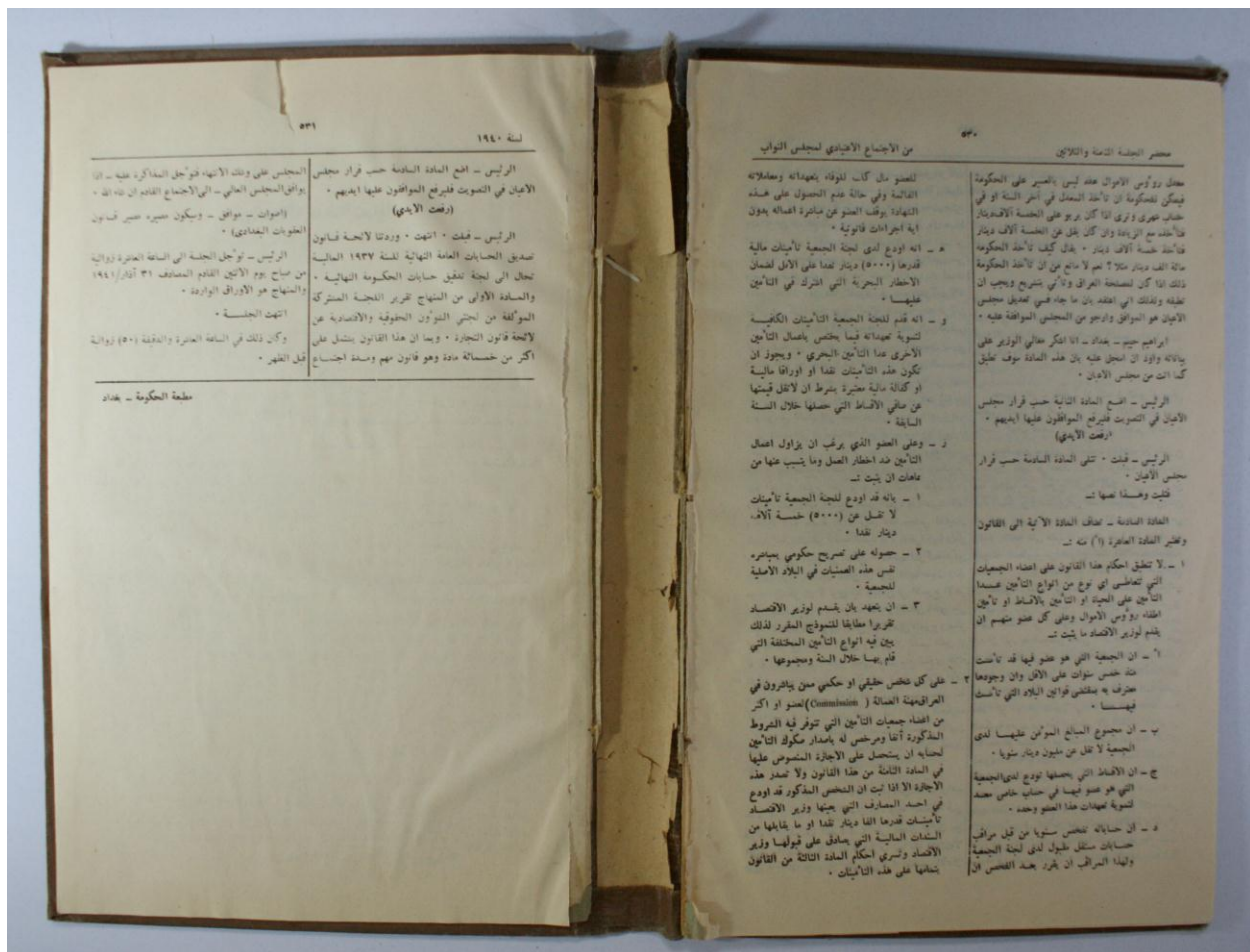 ٥٣٠
محضر الجلسة الثامنة والثلاثين
من الاجتماع الاعتيادي لمجلس النواب
معدل روؤس الاموال عقد ليس بالعسير على الحكومة
فيمكن للحكومة ان تأخذ المعدل في آخر السنة او في
حساب شهري وترى اذا كان يربو على الخمسة آلاف دينار
فتأخذه مع الزيادة وان كان يقل عن الخمسة آلاف دينار
فتأخذ خمسة آلاف دينار ٠ يقال كيف تأخذ الحكومة
مائة الف دينار مثلا ؟ نعم لا مانع من ان تأخذ الحكومة
ذلك اذا كان لمصلحة العراق وتأتي بتشريع ويجب ان
تطبقه ولذلك اني اعتقد بان ما جاء في تعديل مجلس
الاعيان هو الموافق وارجو من المجلس الموافقة عليه ٠
ابراهيم حييم ــ بغداد ــ انا اشكر معالي الوزير على
بياناته واود ان اسجل عليه بان هذه المادة سوف تطبق
كما اتت من مجلس الاعيان ٠
الرئيس ــ اضع المادة الثانية حسب قرار مجلس
الاعيان في التصويت فليرفع الموافقون عليها ايديهم ٠
(رفعت الايدي)
الرئيس ــ قبلت ٠ تتلى المادة السادسة حسب قرار
مجلس الاعيان ٠
فتليت وهذا نصها :ــ
المادة السادسة ــ تضاف المادة الآتية الى القانون
وتعتبر المادة العاشرة (أ) منه :ــ
١ ــ لا تنطبق احكام هذا القانون على اعضاء الجمعيات
التي تتعاطى اي نوع من انواع التأمين عدا
التأمين على الحياة او التأمين بالاقساط او تأمين
اطفاء روؤس الاموال وعلى كل عضو منهم ان
يقدم لوزير الاقتصاد ما يثبت :ــ
أ ــ ان الجمعية التي هو عضو فيها قد تأسست
منذ خمس سنوات على الاقل وان وجودها
معترف به بمقتضى قوانين البلاد التي تأسست
فيها ٠
ب ــ ان مجموع المبالغ الموؤمن عليها لدى
الجمعية لا تقل عن مليون دينار سنويا ٠
ج ــ ان الاقساط التي يحصلها تودع لدى الجمعية
التي هو عضو فيها في حساب خاص معد
لتسوية تعهدات هذا العضو وحده ٠
د ــ ان حساباته تفحص سنويا من قبل مراقب
حسابات مستقل مقبول لدى لجنة الجمعية
ولهذا المراقب ان يقرر بعد الفحص ان
للعضو مال كاف للوفاء بتعهداته ومعاملاته
القائمة وفي حالة عدم الحصول على هذه
الشهادة يوقف العضو عن مباشرة اعماله بدون
اية اجراءات قانونية ٠
هـ ــ انه اودع لدى لجنة الجمعية تأمينات مالية
قدرها (٥٠٠٠) دينار نقدا على الاقل لضمان
الاخطار البحرية التي اشترك في التأمين
عليها ٠
و ــ انه قدم للجنة الجمعية التأمينات الكافية
لتسوية تعهداته فيما يختص باعمال التأمين
الاخرى عدا التأمين البحري ٠ ويجوز ان
تكون هذه التأمينات نقدا او اوراقا مالية
او كفالة مالية معتبرة بشرط ان لا تقل قيمتها
عن صافي الاقساط التي حصلها خلال السنة
السابقة ٠
ز ــ وعلى العضو الذي يرغب ان يزاول اعمال
التأمين ضد اخطار العمل وما يتسبب عنها من
عاهات ان يثبت :ــ
١ ــ بانه قد اودع للجنة الجمعية تأمينات
لا تقل عن (٥٠٠٠) خمسة آلاف
دينار نقدا ٠
٢ ــ حصوله على تصريح حكومي بمباشرة
نفس هذه العمليات في البلاد الاصلية
للجمعية ٠
٣ ــ ان يتعهد بان يقدم لوزير الاقتصاد
تقريرا مطابقا للنموذج المقرر لذلك
يبين فيه انواع التأمين المختلفة التي
قام بها خلال السنة ومجموعها ٠
٢ ــ على كل شخص حقيقي او حكمي ممن يباشرون في
العراق مهنة العمالة (Commission) لعضو او اكثر
من اعضاء جمعيات التأمين التي تتوفر فيه الشروط
المذكورة آنفا ومرخص له باصدار صكوك التأمين
لحسابه ان يستحصل على الاجازة المنصوص عليها
في المادة الثامنة من هذا القانون ولا تصدر هذه
الاجازة الا اذا ثبت ان الشخص المذكور قد اودع
في احد المصارف التي يعينها وزير الاقتصاد
تأمينات قدرها الفا دينار نقدا او ما يقابلها من
السندات المالية التي يصادق على قبولها وزير
الاقتصاد وتسري احكام المادة الثالثة من القانون
بتمامها على هذه التأمينات ٠
٥٣١
لسنة ١٩٤٠
الرئيس ــ اضع المادة السادسة حسب قرار مجلس
الاعيان في التصويت فليرفع الموافقون عليها ايديهم ٠
(رفعت الايدي)
الرئيس ــ قبلت ٠ انتهت ٠ وردتنا لائحة قانون
تصديق الحسابات العامة النهائية للسنة ١٩٣٧ المالية
تحال الى لجنة تدقيق حسابات الحكومة النهائية ٠
والمادة الاولى من المنهاج تقرير اللجنة المشتركة
الموؤلفة من لجنتي الشوؤون الحقوقية والاقتصادية عن
لائحة قانون التجارة ٠ وبما ان هذا القانون يشتمل على
اكثر من خمسمائة مادة وهو قانون مهم ومدة اجتماع
المجلس على وشك الانتهاء فنوؤجل المذاكرة عليه ــ اذا
يوافق المجلس العالي ــ الى الاجتماع القادم ان شاء الله ٠
(اصوات ــ موافق ــ وسيكون مصيره مصير قانون
العقوبات البغدادي) ٠
الرئيس ــ نوؤجل الجلسة الى الساعة العاشرة زوالية
من صباح يوم الاثنين القادم المصادف ٣١ آذار/١٩٤١
والمنهاج هو الاوراق الواردة ٠
انتهت الجلسة ٠
وكان ذلك في الساعة العاشرة والدقيقة (٥٠) زوالية
قبل الظهر ٠
مطبعة الحكومة ــ بغداد